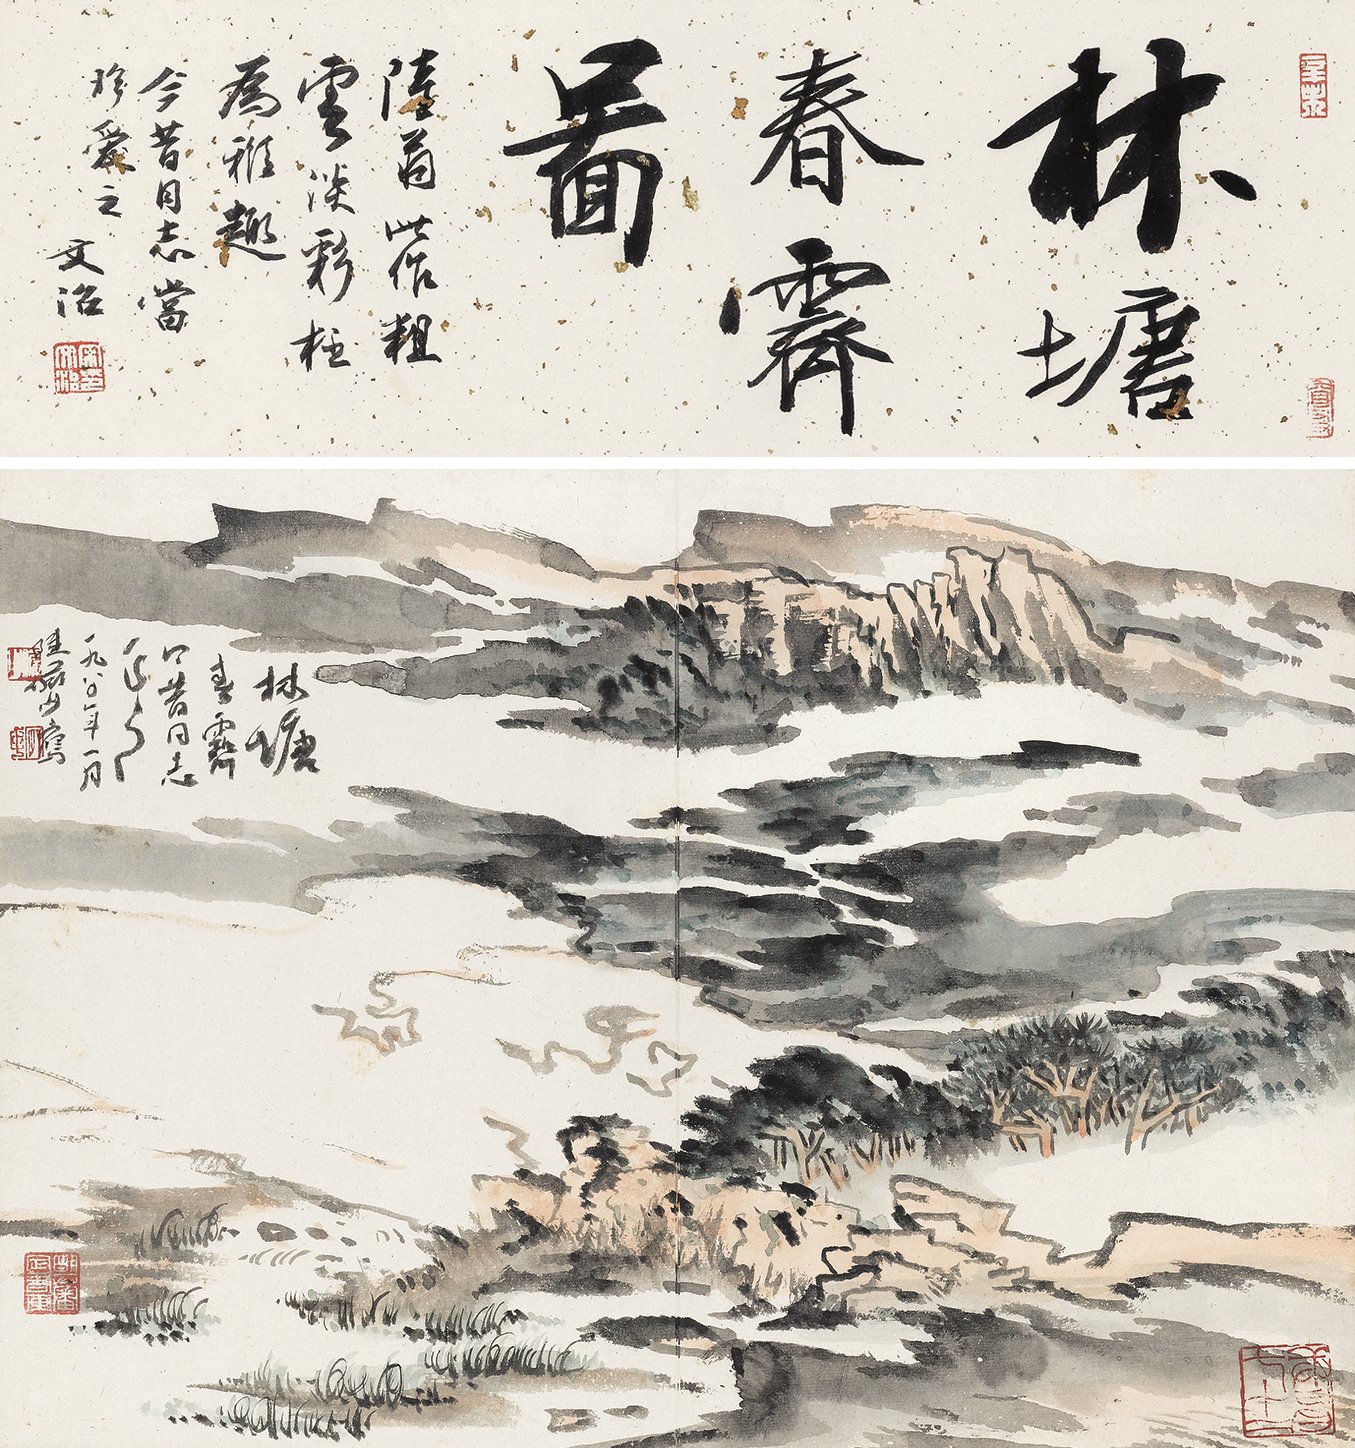 林塘
春霽
圖
陸翁此作粗
雲淡彩極
為雅趣
今昔同志當
珍愛之
文治
林塘
春霽
今昔同志
一九八〇年一月
陸儼少寫